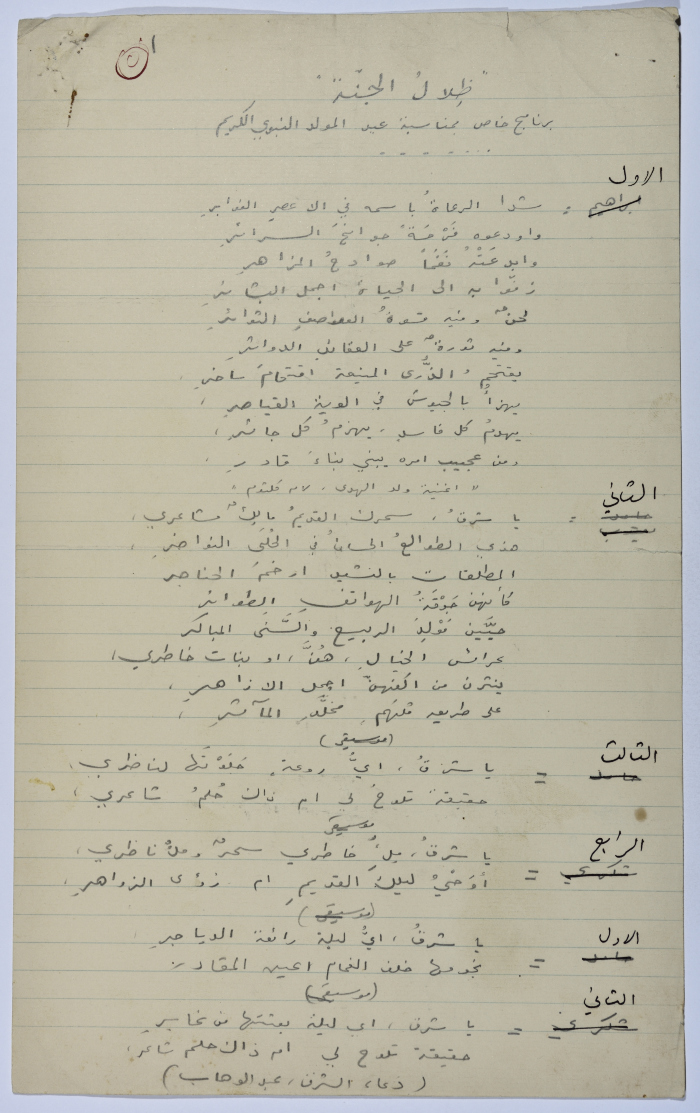 ١
٥
"ظِلالُ الجنّة"
برنامج خاص بمناسبة عيد المولد النبوي الكريم
الاول
ابراهيم = شدا الرعاةُ باسمه في الاعصرِ الغوابرِ
واودعوه فَرْحَةً جوانحَ السرائرِ
وابدعَتْهُ نَغَماً صوادحُ المزاهرِ
زفّوا به الى الحياة اجمل البشائرِ
لحنٌ وفيه قسوةُ العواصفِ الثوائرِ
وفيه ثورةٌ على العقائدِ الدوائرِ
يقتحمُ الذُّرى المنيعة اقتحامَ ساخرِ ،
يهزأُ بالجيوش في الوية القياصرِ ،
يهدمُ كل فاسدٍ ، يهزمُ كل جائرِ ،
ومن عجيب امره يبني بناءَ قادرِ
" اغنية ولد الهدى ، لام كلثوم "
الثاني
حامد
= يا شرقُ ، سحرك القديمُ مالكٌ مشاعري ،
هذي الطوالعُ الحسانُ في الحُلَى النواضرِ ،
المطلقات بالنشيد ارخمَ الحناجر
كأنهن جَوْقَةُ الهواتفِ الطوائرِ
حيَّين مَوْلِدَ الربيعِ والسَّنَى المباكرِ
عرائس الخيالِ ، هُنَّ ، او بنات خاطري ،
ينثرن من اكفهنّ اجمل الازاهر ،
على طريق مُلهَمٍ مخلَّدِ المآثرِ ،
(موسيقى)
الثالث
حامد = يا شرقُ ، ايُّ روعةٍ جَلَوْتَها لناظري ،
حقيقة تلوحُ لي ام ذاك حُلمُ شاعري ،
موسيقى
الرابع
شكري = يا شرقُ ، مِلءُ خاطري سحرٌ وملءُ ناظري ،
أَوَحْيُ ليلك القديمِ ام رؤى الزواهرِ ،
(موسيقى)
الاول
حامد = يا شرقُ ، ايُّ ليلة رائعة الدياجرِ
نجومها خلف الغمام اعين المقادرِ
(موسيقى)
الثاني
شكري = يا شرق ، اي ليلة بعثتها من غابرٍ
حقيقة تلوح لي ام ذاك حلم شاعر ،
( دعاء الشرق ، عبد الوهاب )